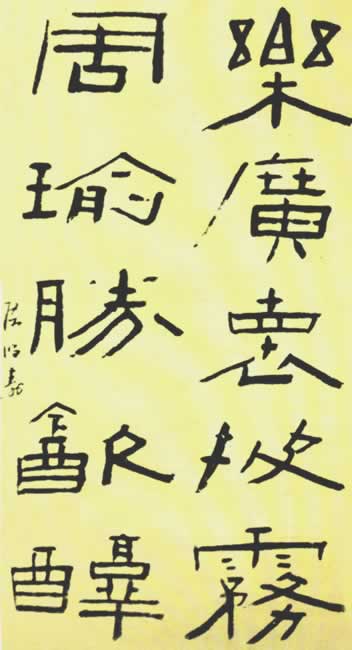 樂廣褱披霧
周瑜勝㱃醇